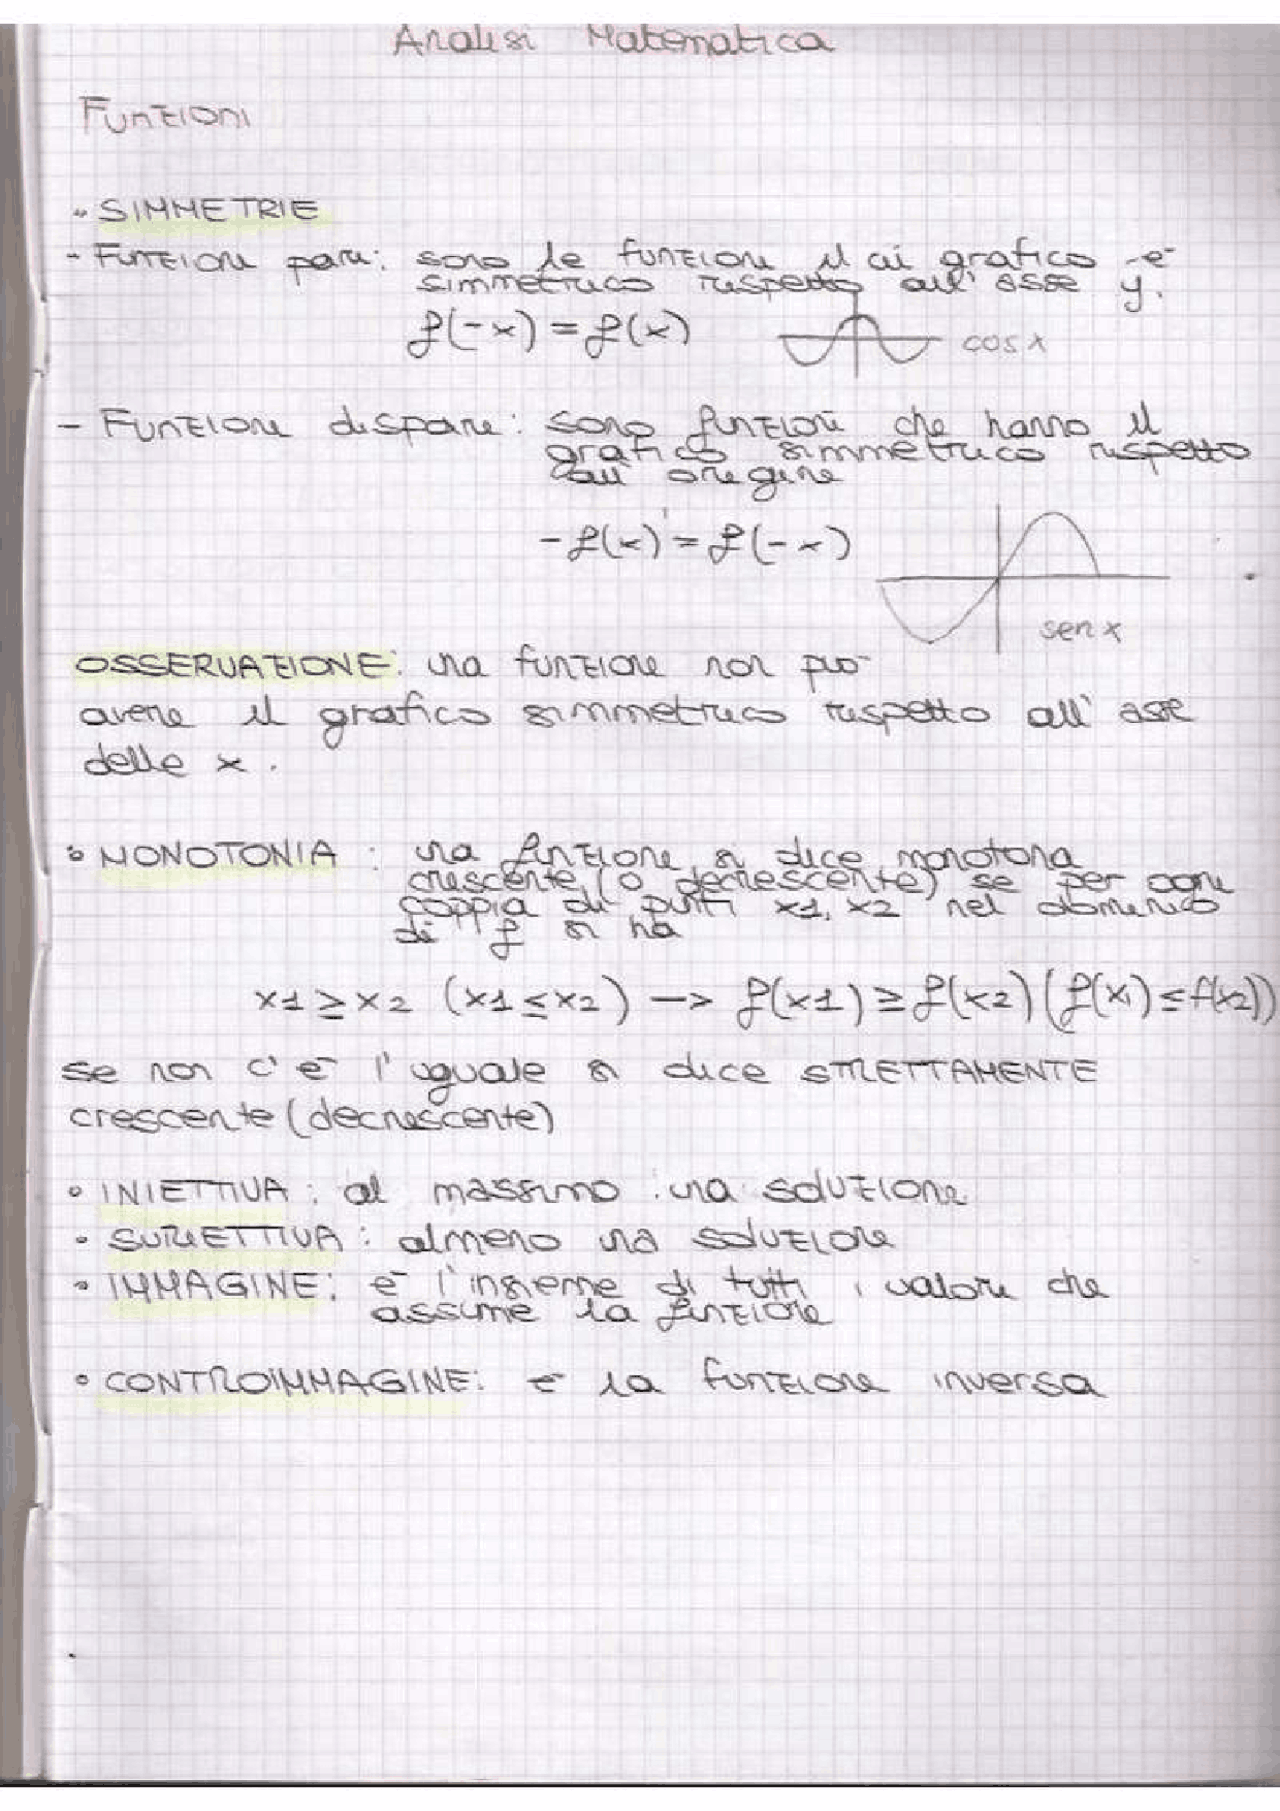 Analisi Matematica
Funzioni
• SIMMETRIE
- Funzione pari: sono le funzioni il cui grafico è
simmetrico rispetto all' asse y.
f(-x) = f(x)
cos x
- Funzione dispari: sono funzioni che hanno il
grafico simmetrico rispetto
all' origine
-f(x) = f(-x)
sen x
OSSERVAZIONE: una funzione non può
avere il grafico simmetrico rispetto all' asse
delle x.
• MONOTONIA : una funzione si dice monotona
crescente (o decrescente) se per ogni
coppia di punti x1, x2 nel dominio
di f si ha
x1 ≥ x2 (x1 ≤ x2) -> f(x1) ≥ f(x2) (f(x1) ≤ f(x2))
se non c'è l'uguale si dice STRETTAMENTE
crescente (decrescente)
• INIETTIVA : al massimo una soluzione
• SURIETTIVA : almeno una soluzione
• IMMAGINE: è l'insieme di tutti i valori che
assume la funzione
• CONTROIMMAGINE: è la funzione inversa